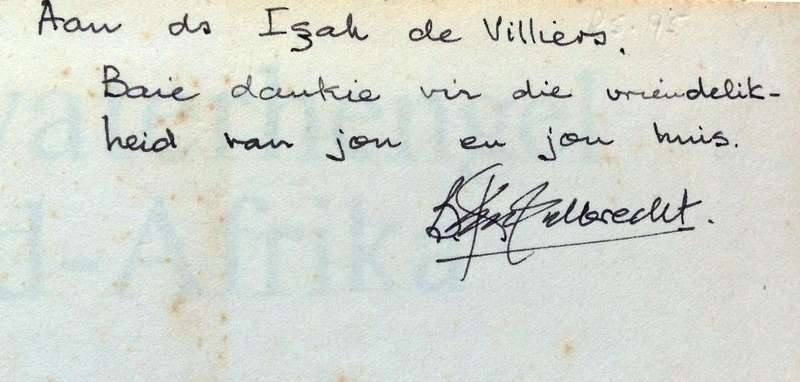 Aan ds Izak de Villiers.
Baie dankie vir die vriendelik-
heid van jou en jou huis.